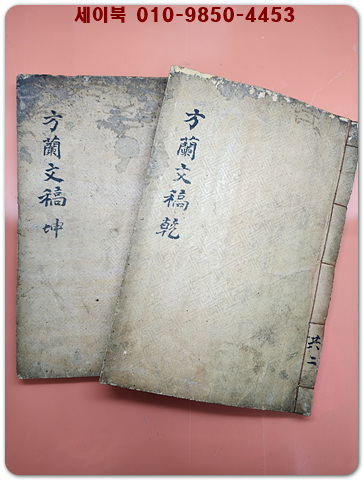 세이북 010-9850-4453
方蘭文稿 乾
共二
方蘭文稿 坤